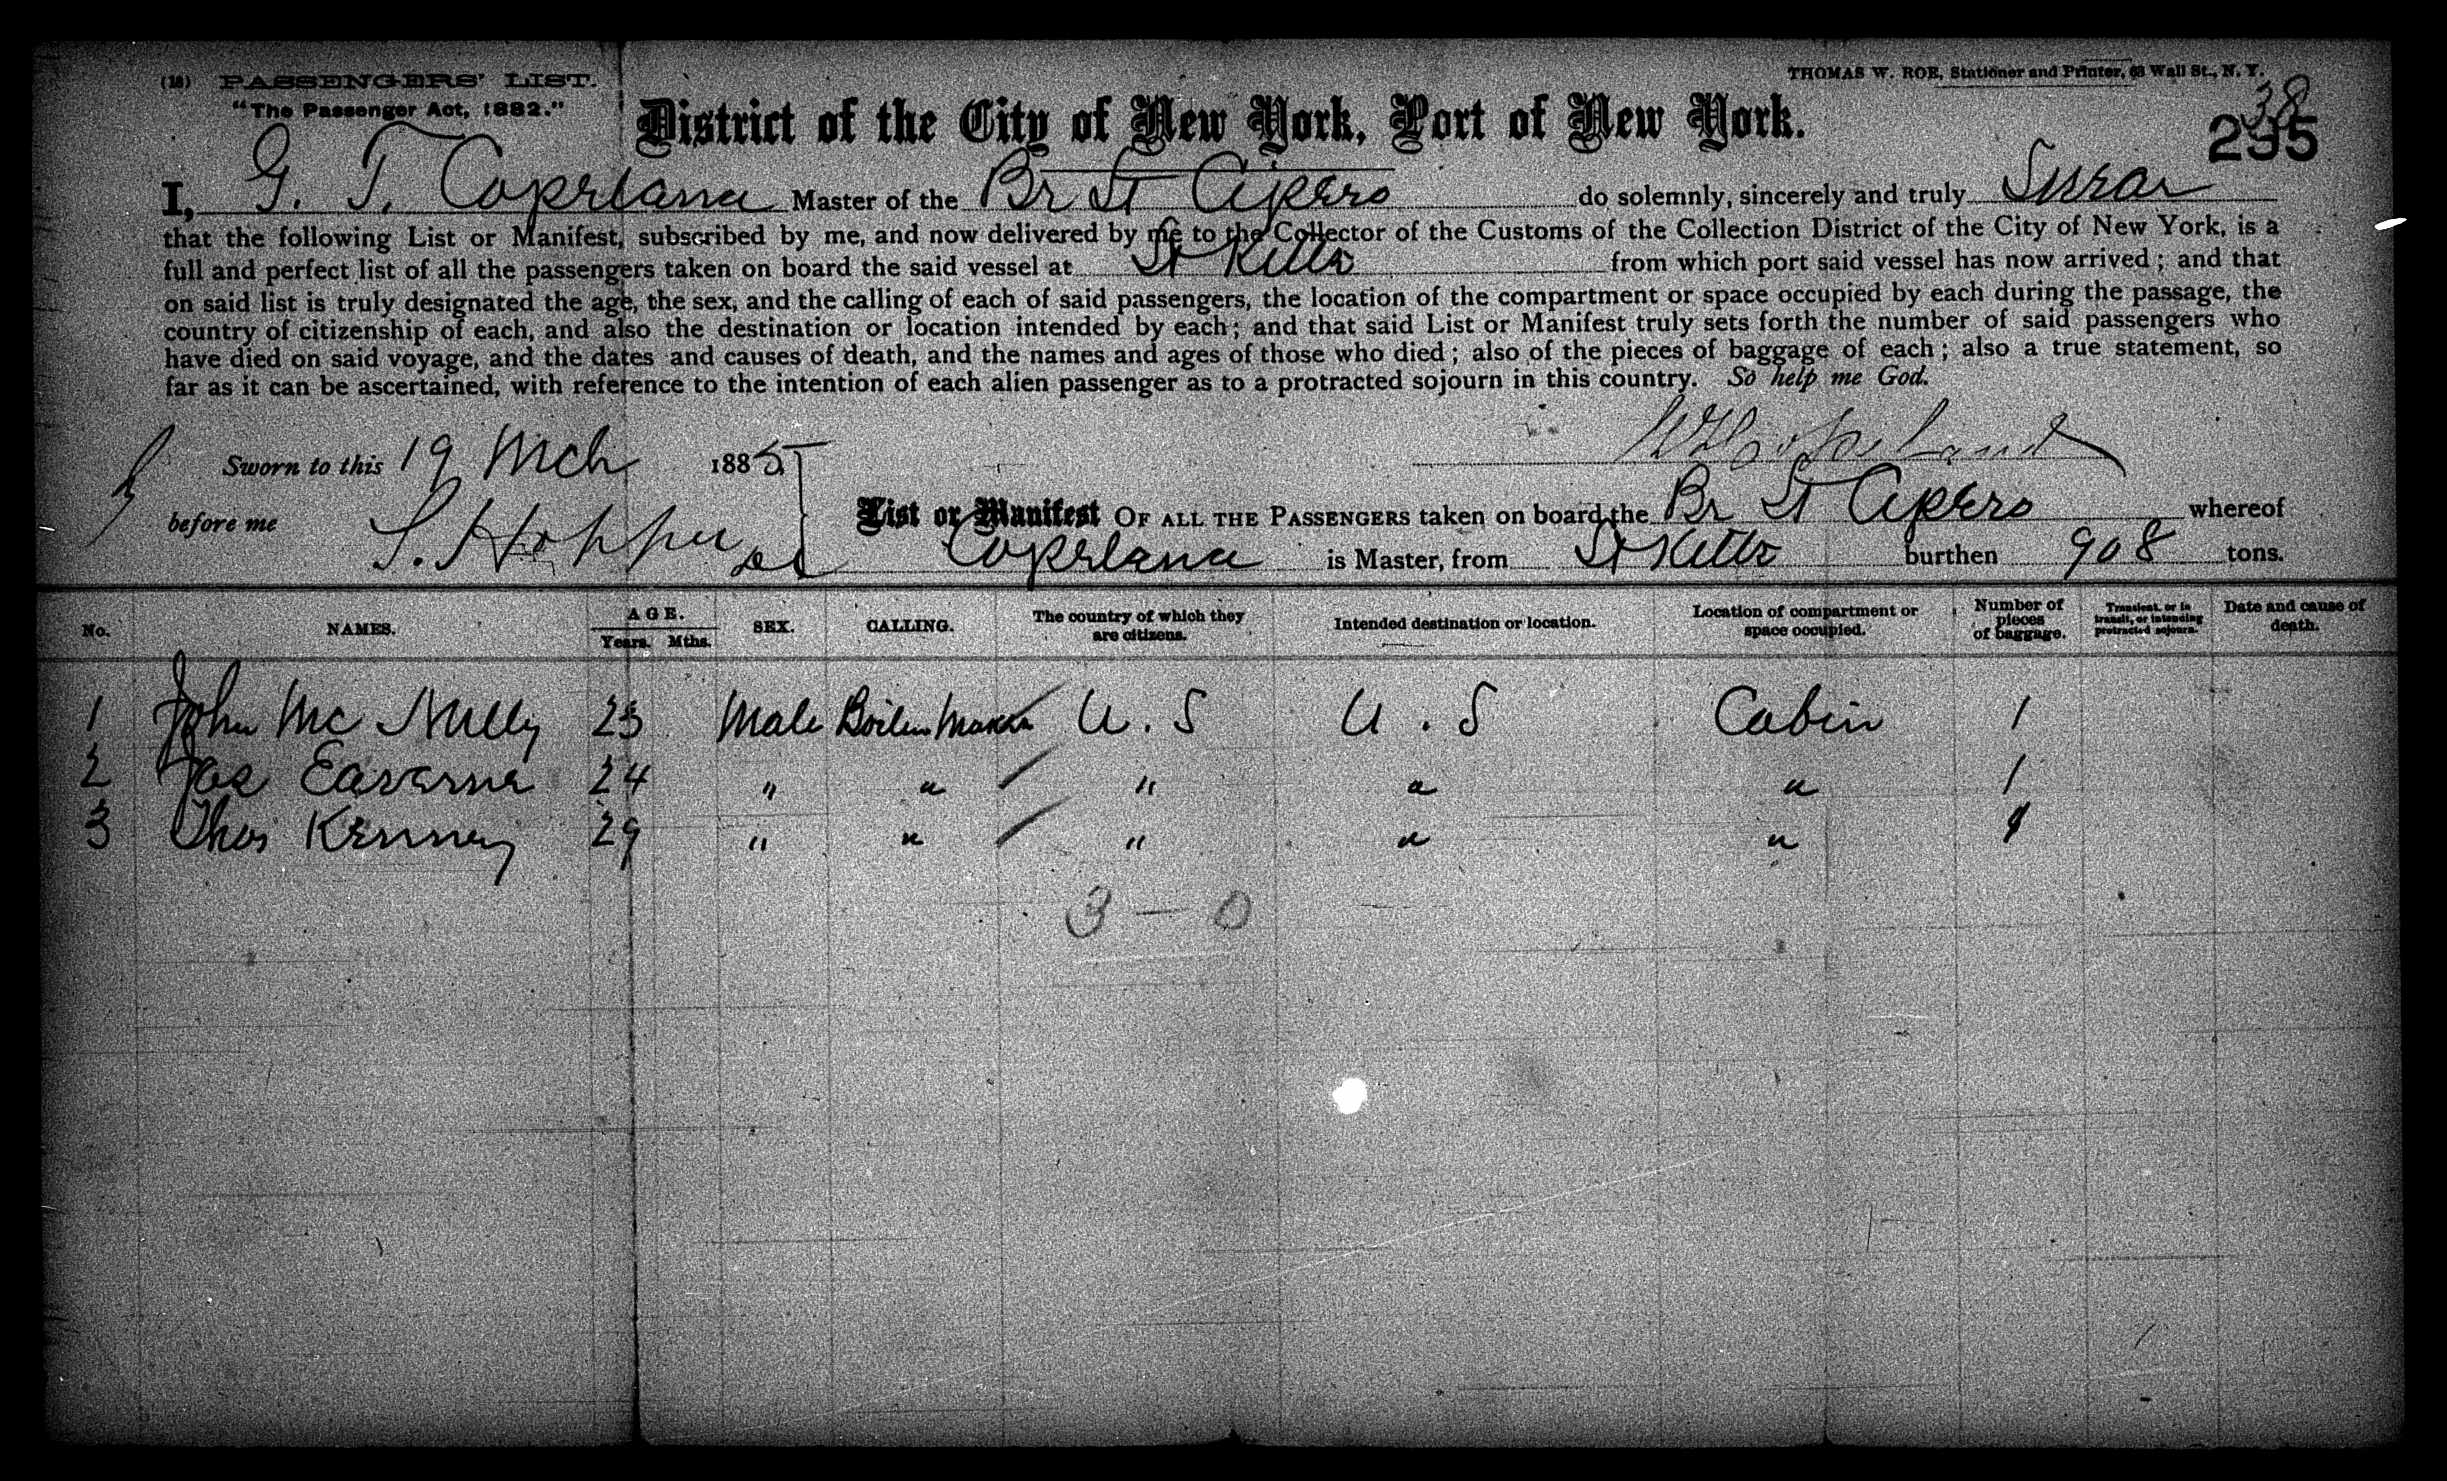 (18) PASSENGERS' LIST.
"The Passenger Act, 1882."
THOMAS W. ROE, Stationer and Printer, 63 Wall St., N. Y.
38
235
District of the City of New York, Port of New York.
I, G. T. Copeland Master of the Br St Cipero do solemnly, sincerely and truly Swear
that the following List or Manifest, subscribed by me, and now delivered by me to the Collector of the Customs of the Collection District of the City of New York, is a
full and perfect list of all the passengers taken on board the said vessel at St Kitts from which port said vessel has now arrived; and that
on said list is truly designated the age, the sex, and the calling of each of said passengers, the location of the compartment or space occupied by each during the passage, the
country of citizenship of each, and also the destination or location intended by each; and that said List or Manifest truly sets forth the number of said passengers who
have died on said voyage, and the dates and causes of death, and the names and ages of those who died; also of the pieces of baggage of each; also a true statement, so
far as it can be ascertained, with reference to the intention of each alien passenger as to a protracted sojourn in this country. So help me God.
Sworn to this 19 Mch 1885
before me
List or Manifest OF ALL THE PASSENGERS taken on board the Br St Cipero whereof
Copeland is Master, from St Kitts burthen 908 tons.
No. NAMES. AGE. Years. Mths. SEX. CALLING. The country of which they are citizens. Intended destination or location. Location of compartment or space occupied. Number of pieces of baggage. Transient, or in transit, or intending protracted sojourn. Date and cause of death.
1 John Mc Nully 23 Male Boiler Maker U. S U. S Cabin 1
2 Jas 24 " " " " " 1
3 Thos Kenney 29 " " " " " 1
3 — 0